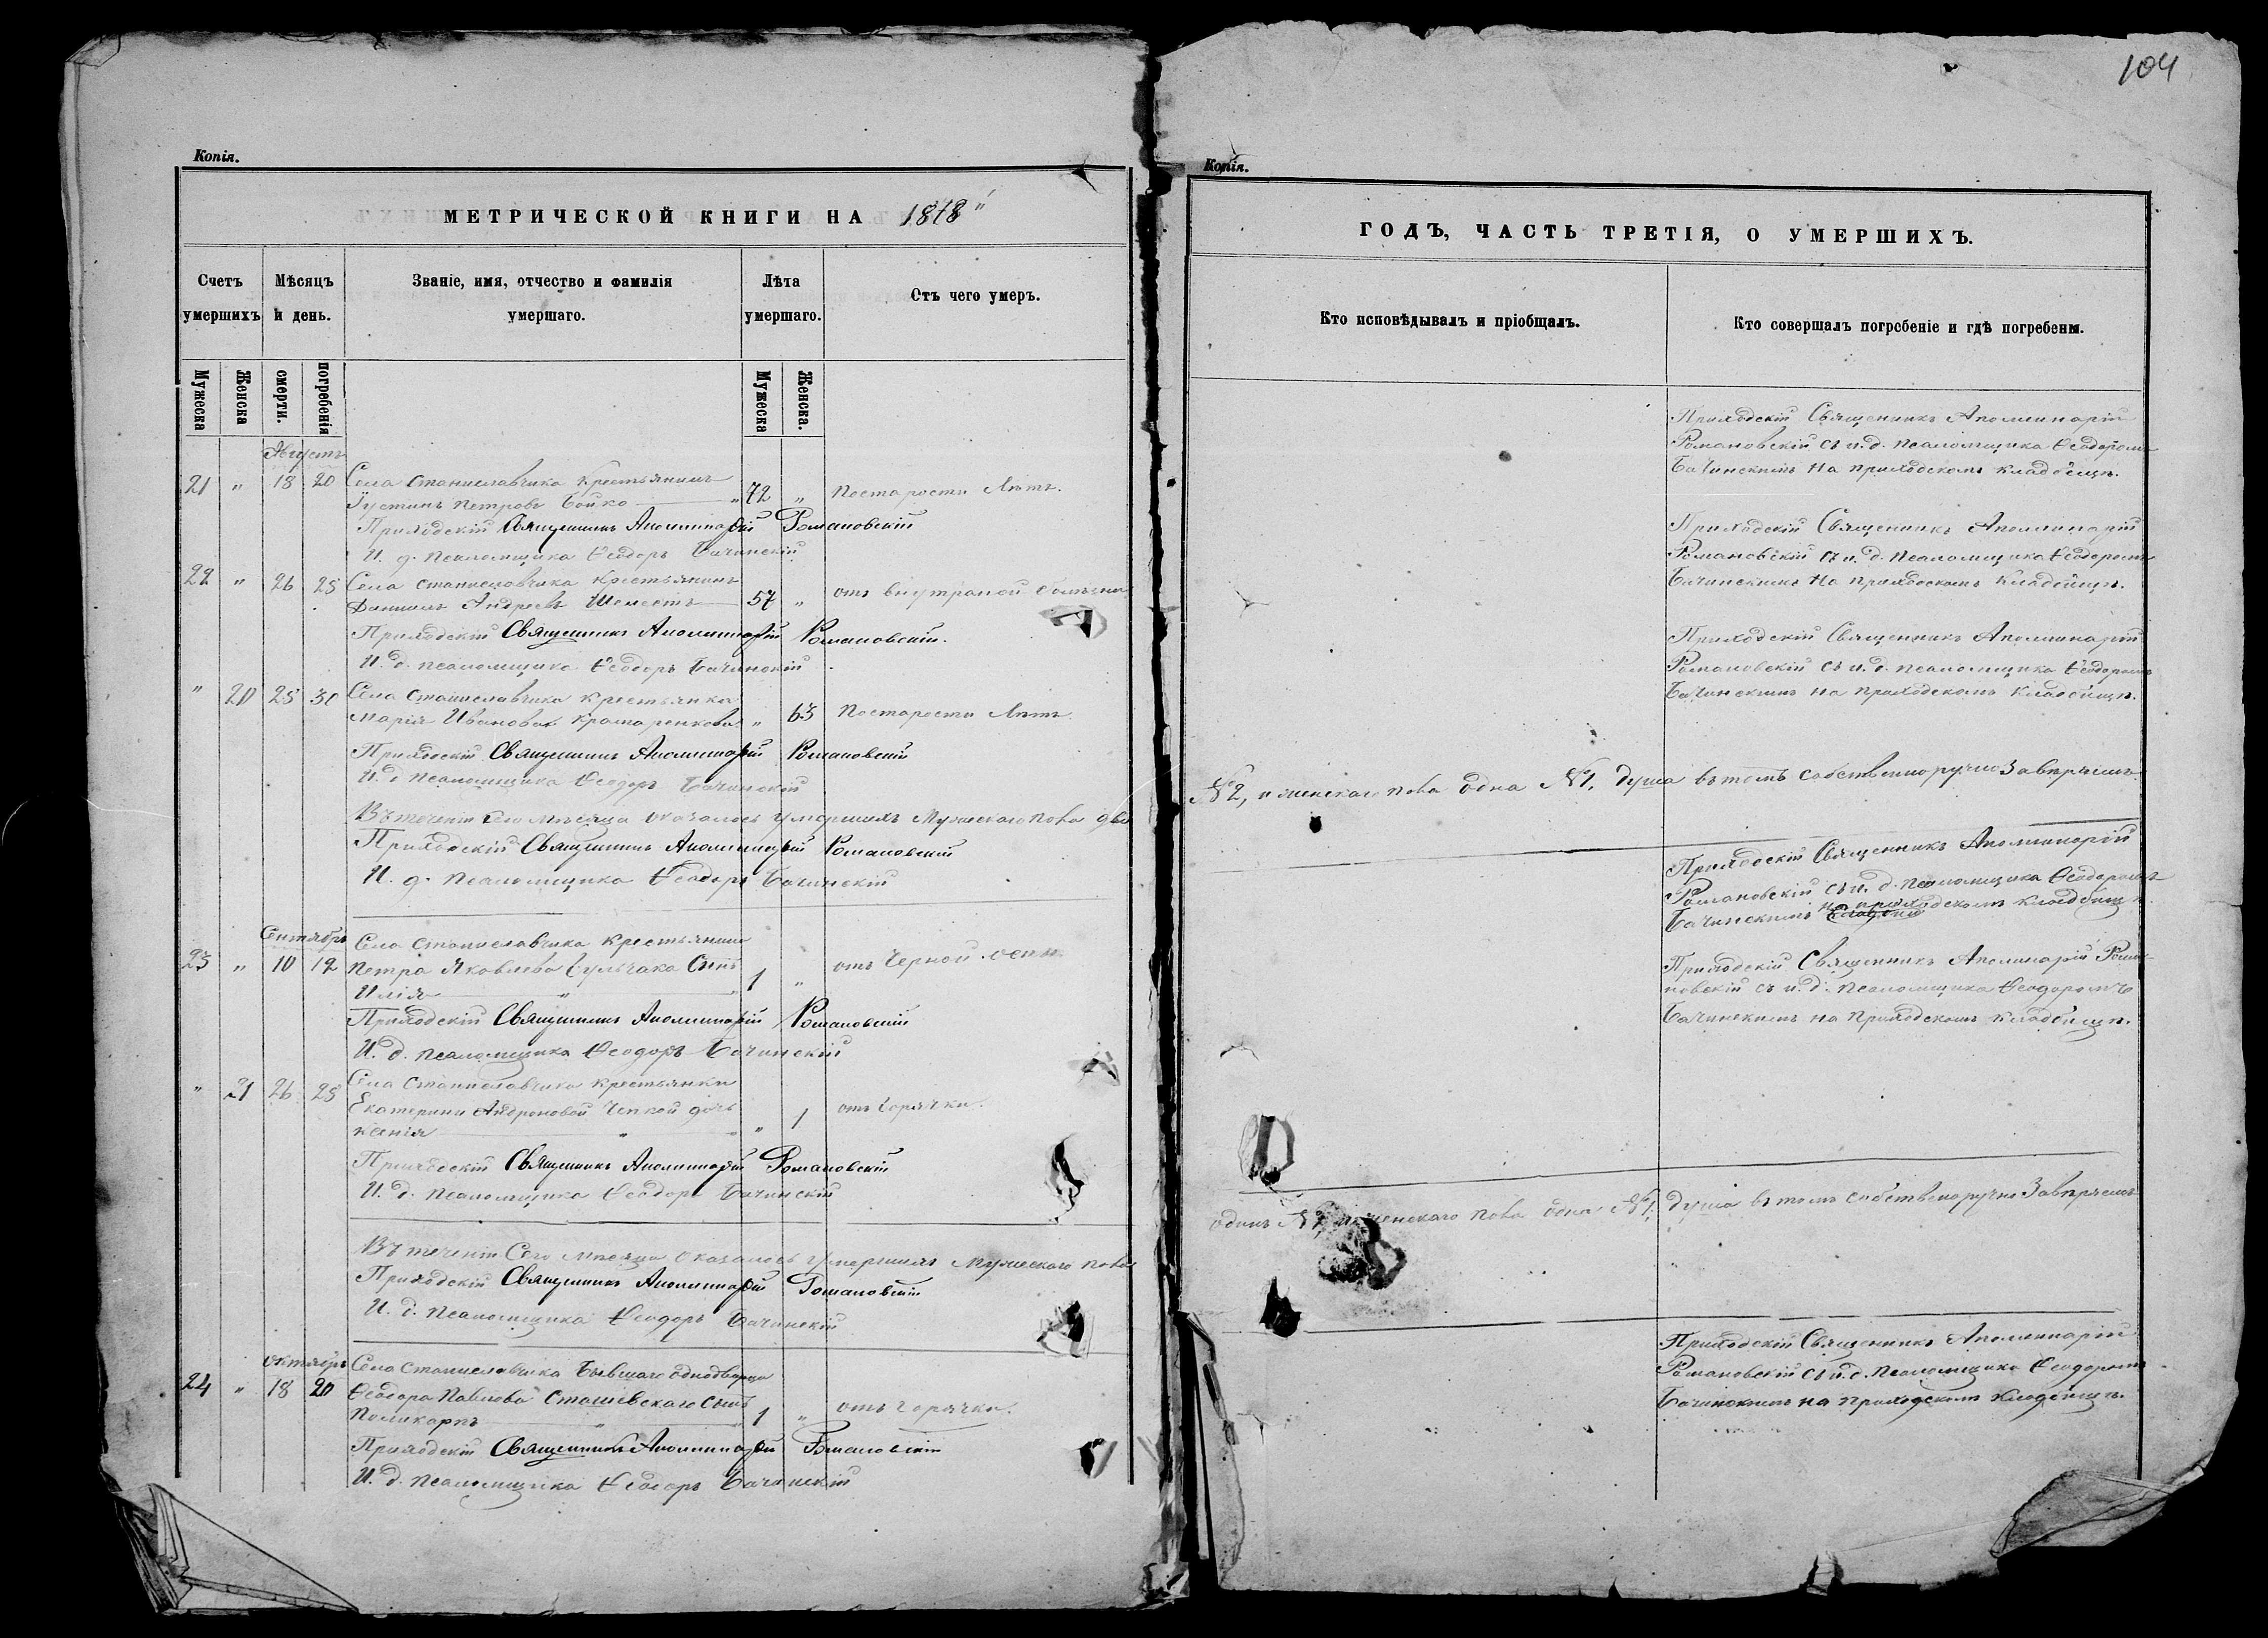 104
Копія.
МЕТРИЧЕСКОЙ КНИГИ НА 1878
Счетъ умершихъ
Мѣсяцъ и день.
Званіе, имя, отчество и фамилія умершаго.
Лѣта умершаго.
Отъ чего умеръ.
Мужеска
Женска
смерти.
погребенія
Мужеска
Женска.
Августъ
21 " 18 20 Села Станиславчика крестьянинъ
Іустинъ Петровъ Бойко " 72 " По старости Лѣтъ.
Приходскій Священникъ Аполлинарій Романовскій
И. д. псаломщика Ѳеодоръ Бачинскій
22 " 26 28 Села Станиславчика крестьянинъ
Даніилъ Андреевъ 57 " отъ внутреной болѣзни
Приходскій Священникъ Аполлинарій Романовскій.
И. д. псаломщика Ѳеодоръ Бачинскій
" 20 28 30 Села Станиславчика крестьянка
Марія Иванова Крамаренкова " 63 По старости Лѣтъ.
Приходскій Священникъ Аполлинарій Романовскій
И. д. псаломщика Ѳеодоръ Бачинскій
Въ теченіи Сего мѣсяца оказалось умершихъ Мужескаго пола два
Приходскій Священникъ Аполлинарій Романовскій
И. д. псаломщика Ѳеодоръ Бачинскій
Сентябрь Села Станиславчика крестьянина
23 " 10 12 Петра Яковлева Сынъ отъ Черной оспы
Илія " " 1 "
Приходскій Священникъ Аполлинарій Романовскій
И. д. псаломщика Ѳеодоръ Бачинскій
" 21 26 28 Села Станиславчика крестьянки
Екатерины Андроновой дочь отъ горячки.
Ксенія " " " 1
Приходскій Священникъ Аполлинарій Романовскій
И. д. псаломщика Ѳеодоръ Бачинскій
Въ теченіи Сего мѣсяца оказалось умершихъ Мужескаго пола
Приходскій Священникъ Аполлинарій Романовскій
И. д. псаломщика Ѳеодоръ Бачинскій
Октябрь Села Станиславчика Бывшаго однодворца
24 " 18 20 Ѳеодора Павлова Сташевскаго Сынъ
Поликарпъ " " 1 " отъ горячки.
Приходскій Священникъ Аполлинарій Романовскій
И. д. псаломщика Ѳеодоръ Бачинскій
Копія.
ГОДЪ, ЧАСТЬ ТРЕТІЯ, О УМЕРШИХЪ.
Кто исповѣдывалъ и пріобщалъ.
Кто совершалъ погребеніе и гдѣ погребены.
Приходскій Священникъ Аполлинарій
Романовскій съ и. д. псаломщика Ѳеодоромъ
Бачинскимъ на приходскомъ кладбищѣ.
Приходскій Священникъ Аполлинарій
Романовскій съ и. д. псаломщика Ѳеодоромъ
Бачинскимъ на приходскомъ кладбищѣ.
Приходскій Священникъ Аполлинарій
Романовскій съ и. д. псаломщика Ѳеодоромъ
Бачинскимъ на приходскомъ кладбищѣ.
№ 2, и женскаго пола одна № 1, душа въ томъ собственноручно завѣряемъ
Приходскій Священникъ Аполлинарій
Романовскій съ и. д. псаломщика Ѳеодоромъ
Бачинскимъ на приходскомъ кладбищѣ
Приходскій Священникъ Аполлинарій Рома-
новскій съ и. д. псаломщика Ѳеодоромъ
Бачинскимъ на приходскомъ кладбищѣ.
одинъ № 1, и женскаго пола одна № 1, душа въ томъ собственоручно завѣряемъ
Приходскій Священникъ Аполлинарій
Романовскій съ и. д. псаломщика Ѳеодоромъ
Бачинскимъ на приходскомъ кладбищѣ.